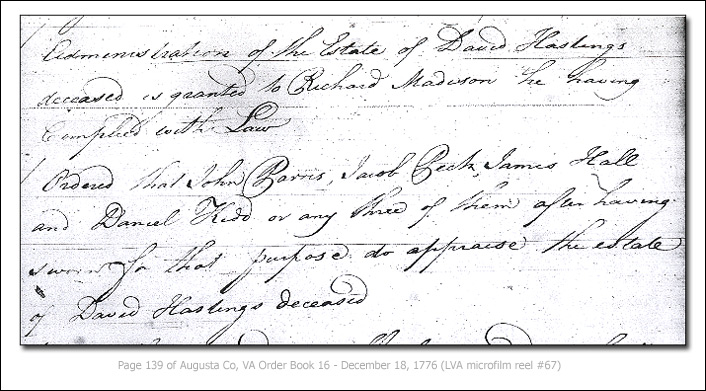 Administration of the Estate of David Hastings
deceased is granted to Richard Madison he having
Complied with Law
Ordered that John Parris, Jacob Peck, James Hall
and Daniel Kidd or any three of them after having
sworn for that purpose do appraise the estate
of David Hastings deceased
Page 139 of Augusta Co, VA Order Book 16 - December 18, 1776 (LVA microfilm reel #67)